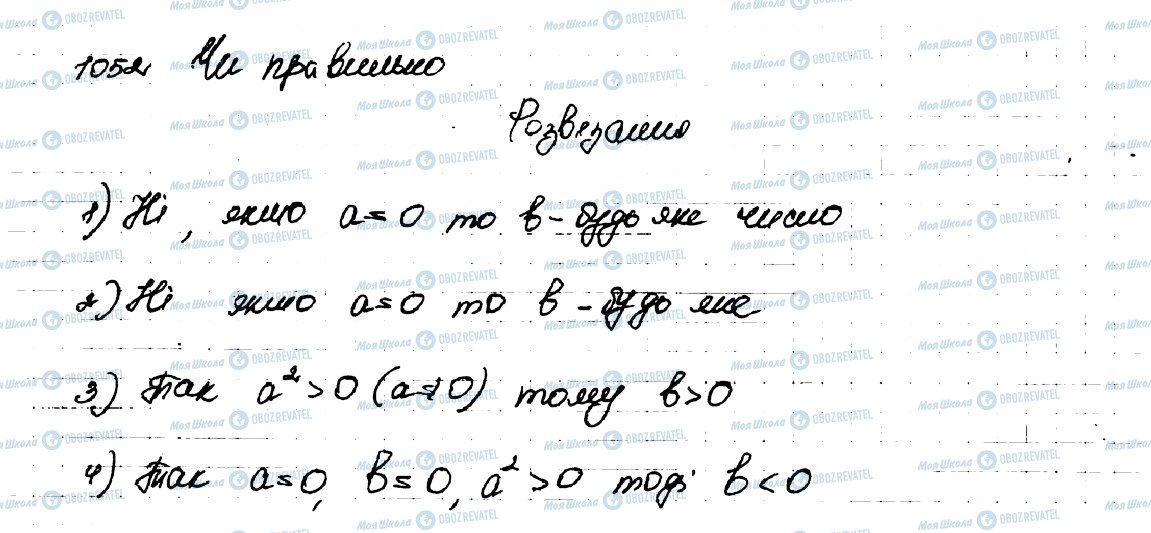 1052 Чи правильно
Розвязання
1) Ні, якщо a=0 то в - будь яке число
2) Ні якщо a=0 то в - будь яке
3) Так a²>0 (a≠0) тому в>0
4) Так a≤0, в≤0, a²>0 тоді в<0